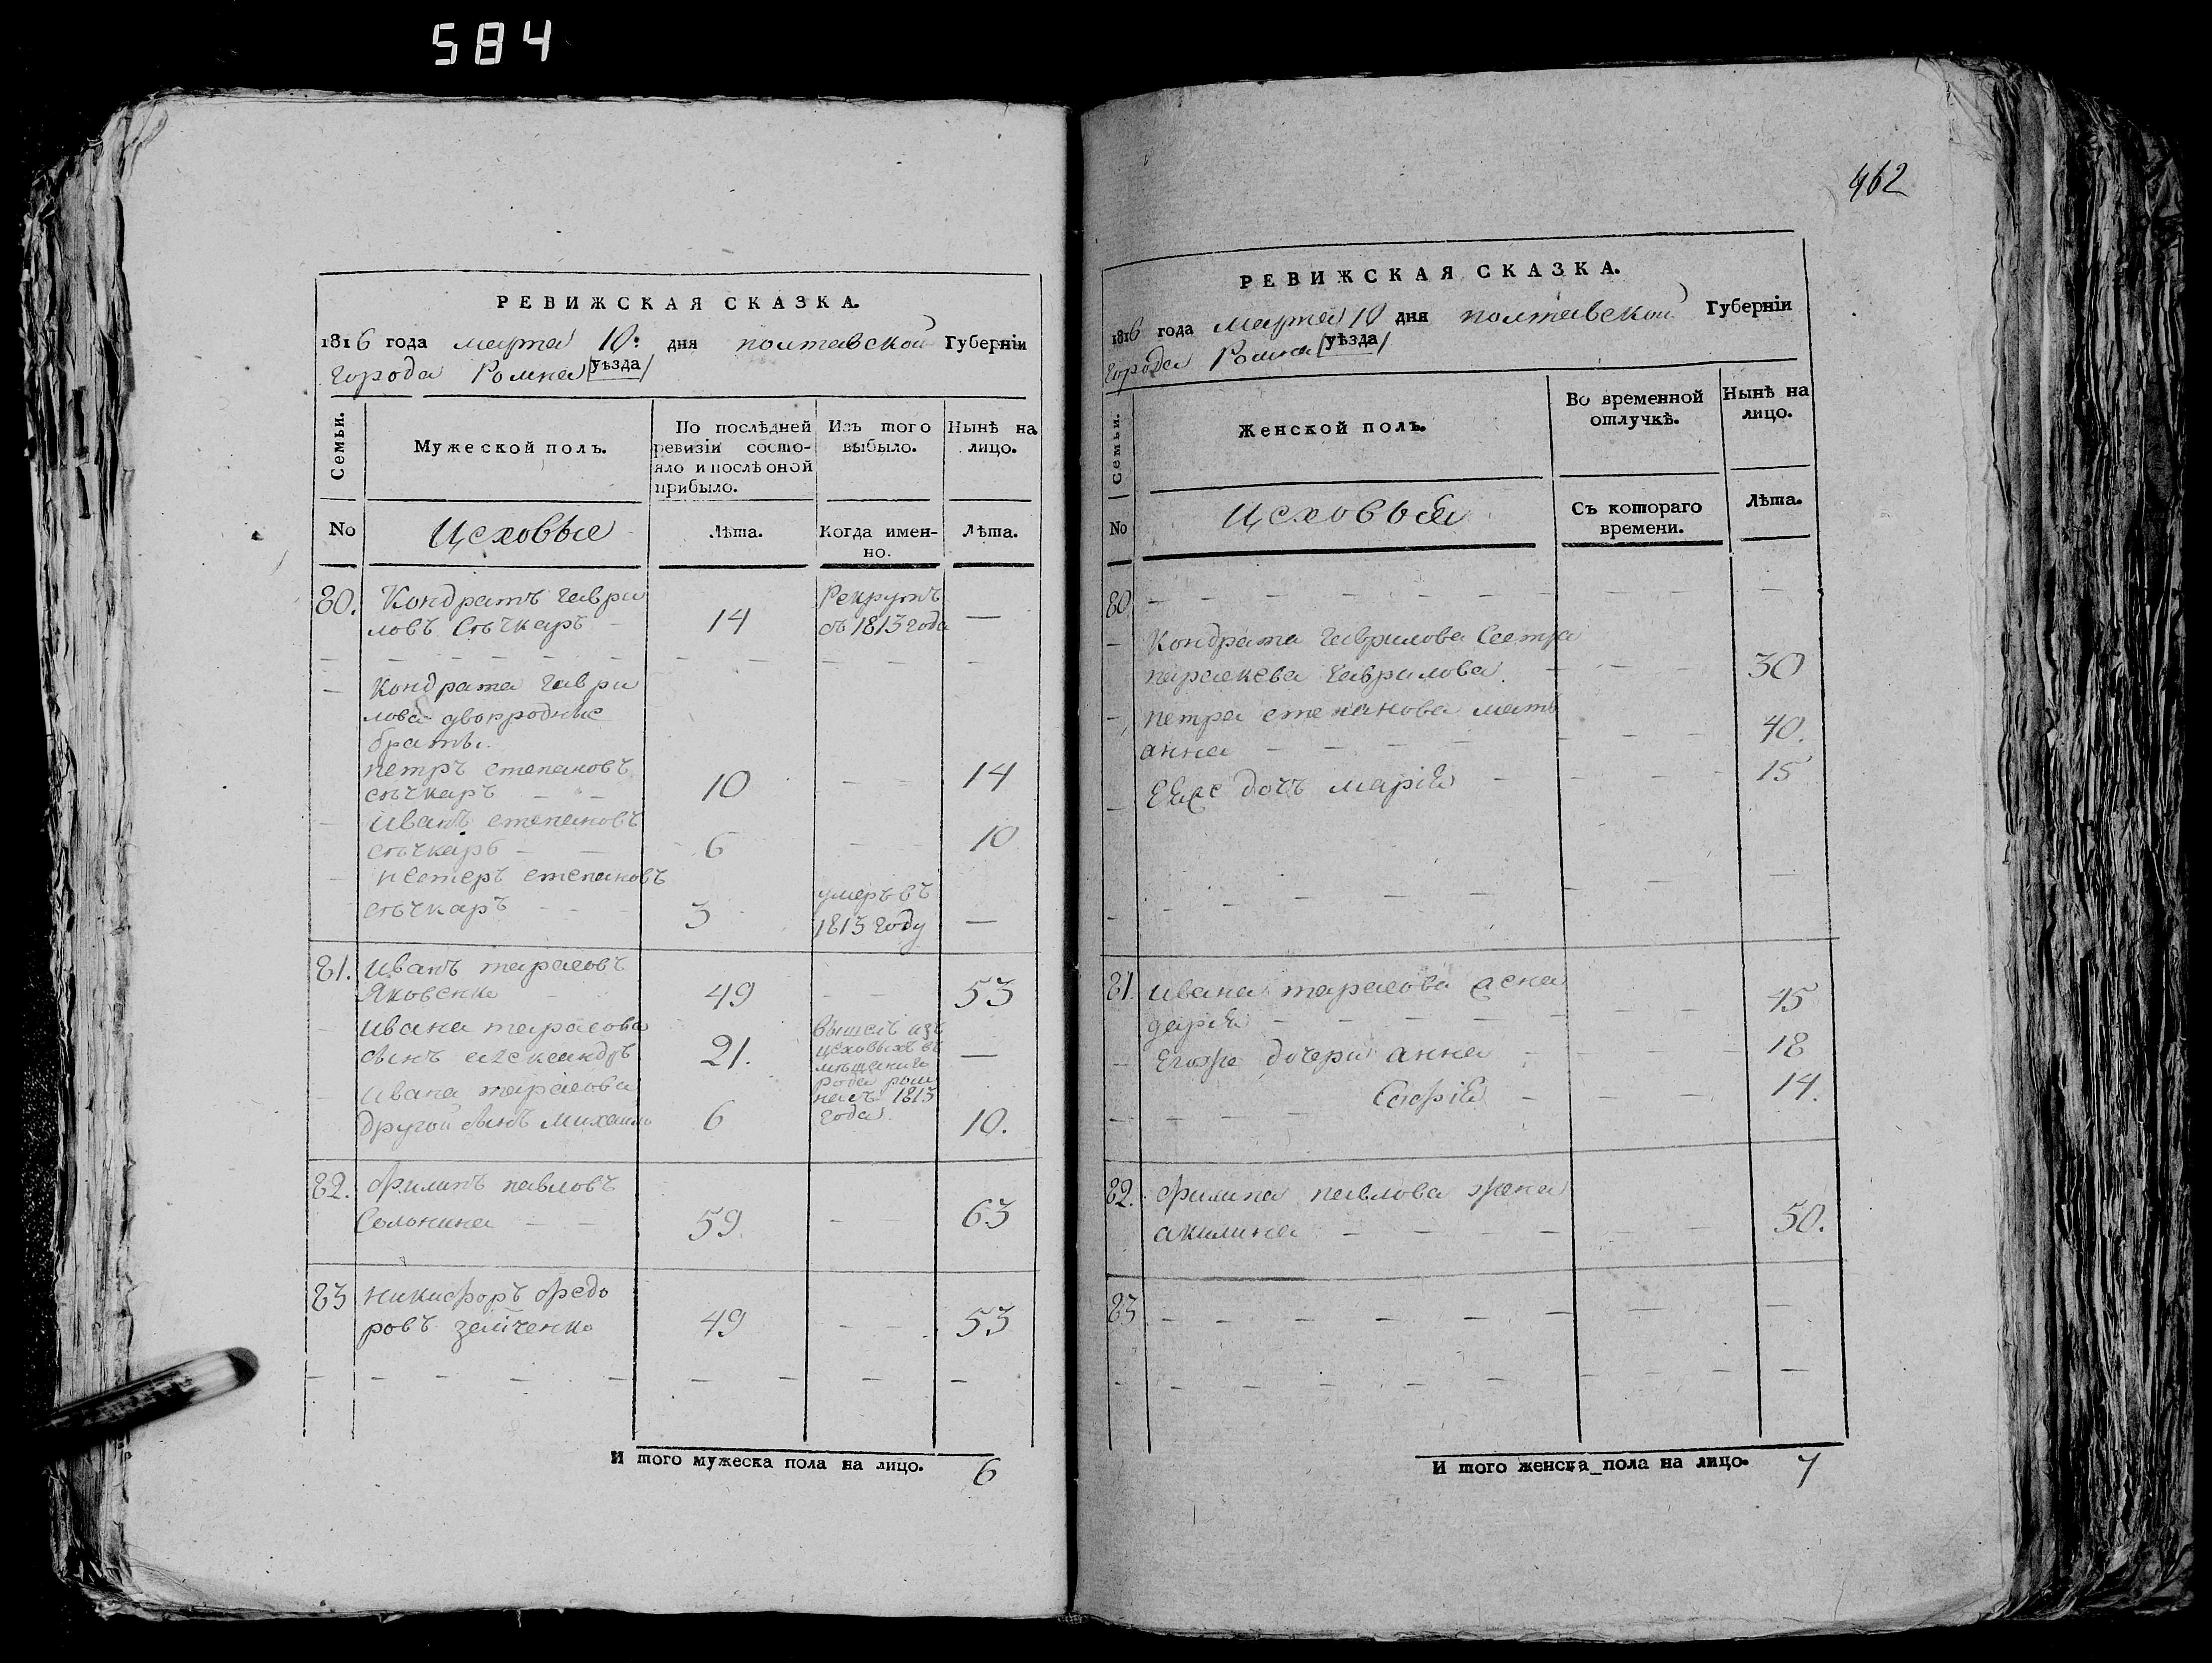 584
РЕВИЖСКАЯ СКАЗКА.
1816 года марта 10. дня полтавской Губерніи
города Ромна уѣзда
Семьи.
Мужеской полъ.
По послѣдней ревизіи состо-
яло и послѣ оной
прибыло.
Изъ того
выбыло.
Нынѣ на
лицо.
No
Цеховые
Лѣта.
Когда имен-
но.
Лѣта.
80. Кондратъ Гаври
ловъ Сѣчкаръ 14 Рекрутъ
съ 1813 года —
Кондрата Гаври
лова двокродные
братья
петръ степановъ
сѣчкаръ 10 14
Иванъ степановъ
сѣчкаръ 6 10
нестеръ степановъ
сѣчкаръ 3 умеръ въ
1813 году —
81. Иванъ тарасовъ
Яковенко 49 53
Ивана тарасова
сынъ александръ 21. вышелъ изъ
цеховыхъ въ
мѣщаны
1813
года —
Ивана тарасова
другой сынъ михаило 6 10.
82. Филипъ павловъ
Солонина 59 63
83 никифоръ федо
ровъ 49 53
И того мужеска пола на лицо. 6
462
РЕВИЖСКАЯ СКАЗКА.
1816 года марта 10 дня полтавской Губерніи
города Ромна уѣзда
Семьи.
Женской полъ.
Во временной
отлучкѣ.
Нынѣ на
лицо.
No
Цеховыя
Съ котораго
времени.
Лѣта.
80
Кондрата Гаврилова Сестра
параскева Гаврилова. 30
петра степанова мать
анна 40.
Еяже дочь марія 15
81. Ивана тарасова жена
дарія 45
Егоже дочери анна 18
Софія 14.
82. Филипа павлова жена
акилина 50.
83
И того женска пола на лицо. 7